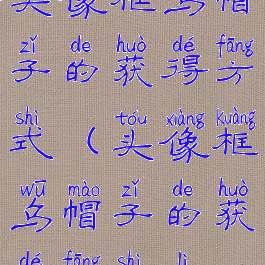 头像框乌帽
zǐ de huò dé fāng
子的获得方
shì tóu xiàng kuàng
式（头像框
wū mào zǐ de huò
乌帽子的获
dé fāng shì lì